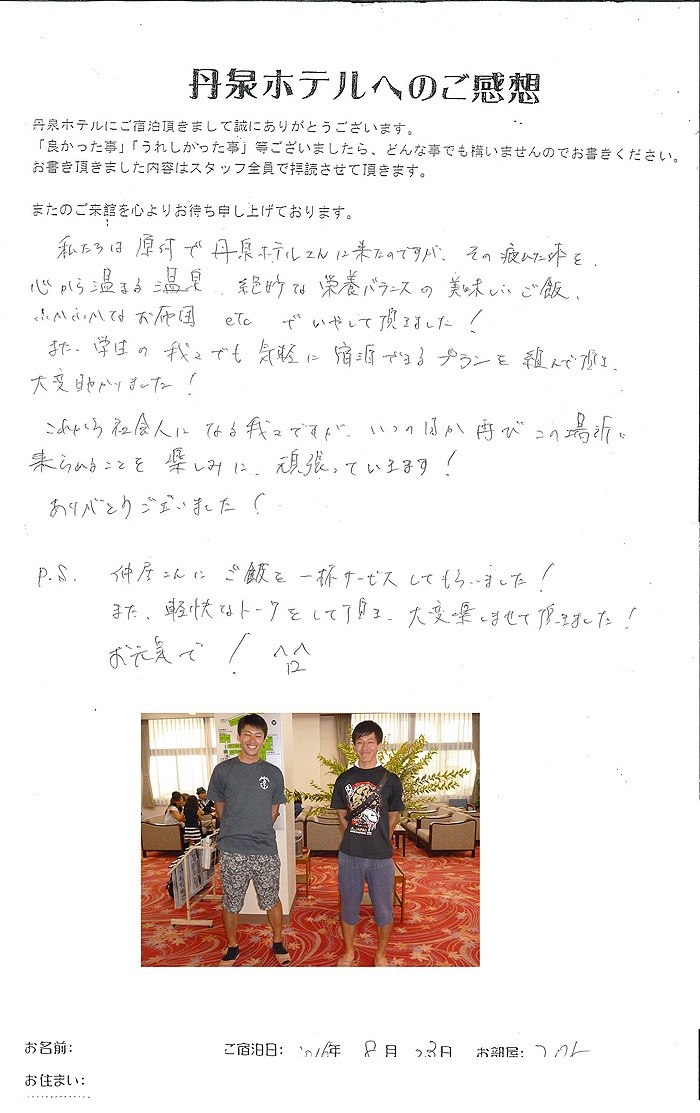 丹泉ホテルへのご感想
丹泉ホテルにご宿泊頂きまして誠にありがとうございます。
「良かった事」「うれしかった事」等ございましたら、どんな事でも構いませんのでお書きください。
お書き頂きました内容はスタッフ全員で拝読させて頂きます。
またのご来館を心よりお待ち申し上げております。
私たちは原付で丹泉ホテルさんに来たのですが、その疲れた体を、
心から温まる温泉、絶妙な栄養バランスの美味しいご飯、
ふかふかなお布団 etc でいやして頂きました!
また、学生の我々でも気軽に宿泊できるプランを組んで頂き、
大変助かりました!
これから社会人になる我々ですが、いつの日か再びこの場所に
来られることを楽しみに、頑張っていきます!
ありがとうございました!
P.S. 仲居さんにご飯を一杯サービスしてもらいました!
また、軽快なトークをして頂き、大変楽しませて頂きました!
お元気で!
お名前: ご宿泊日: 年 8月 23日 お部屋:
お住まい: